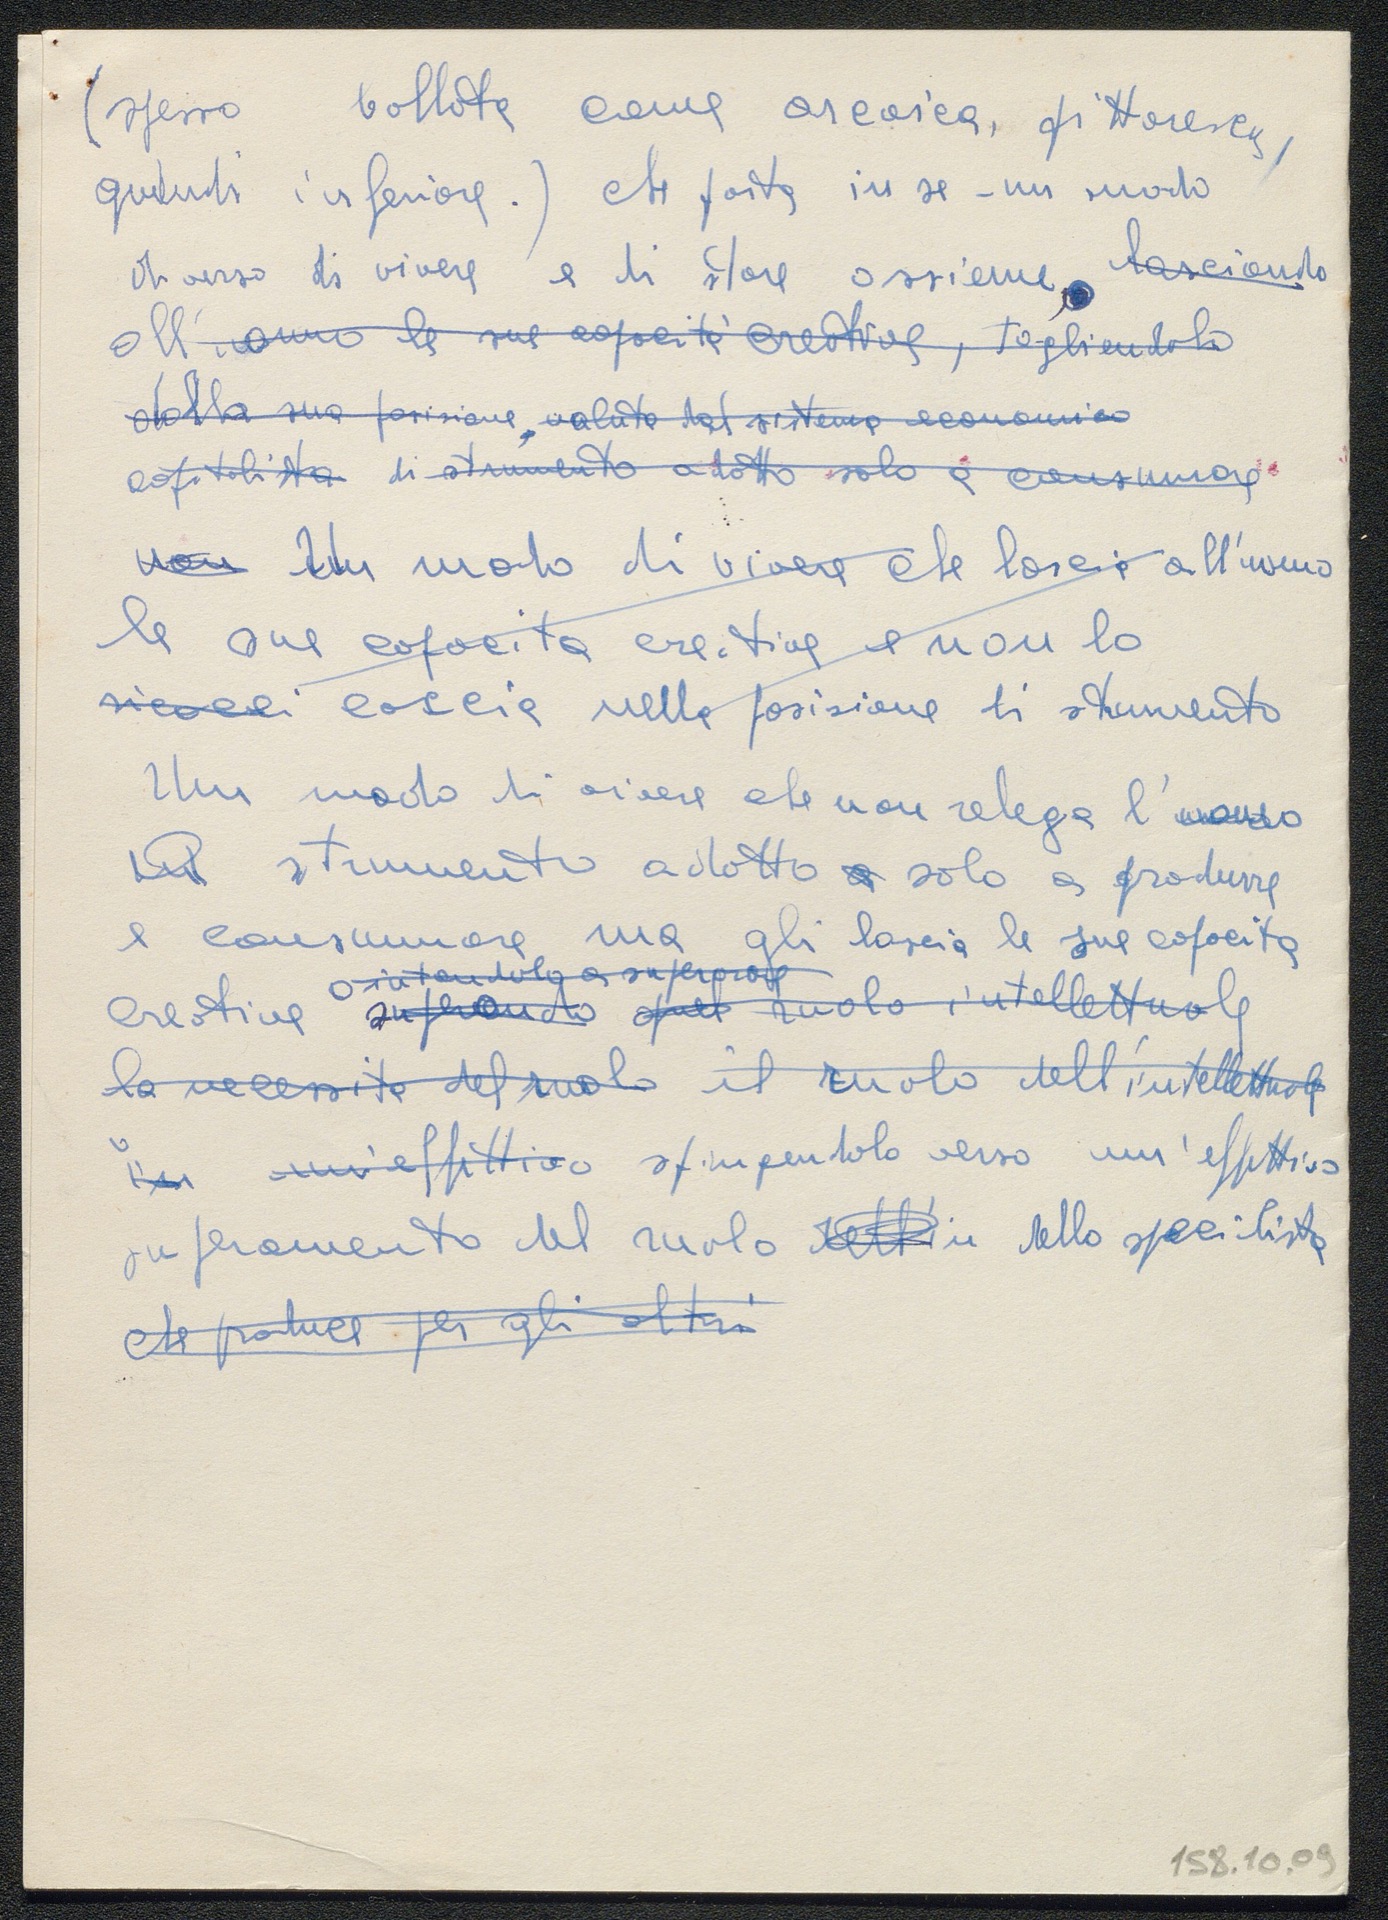 (spesso bollata come arcaica, pittoresca,
quindi inferiore.) che porta in se un modo
diverso di vivere e di stare assieme, lasciando
all'uomo le sue capacità creative, togliendolo
dalla sua posizione, voluta dal sistema economico
capitalista di strumento adatto solo a consumare
non Un modo di vivere che lascia all'uomo
le sue capacita creative e non lo
ricacci caccia nella posizione di strumento
Un modo di vivere che non relega l'uomo
strumento adatto a solo a produrre
e consumare ma gli lascia le sue capacita
aiutandolo a superare
creative superando quel ruolo intellettuale
la necessita del ruolo il ruolo dell'intellettuale
in un'effettivo spingendolo verso un'effettivo
superamento del ruolo dell'in dello specilista
che produce per gli altri
158.10.09